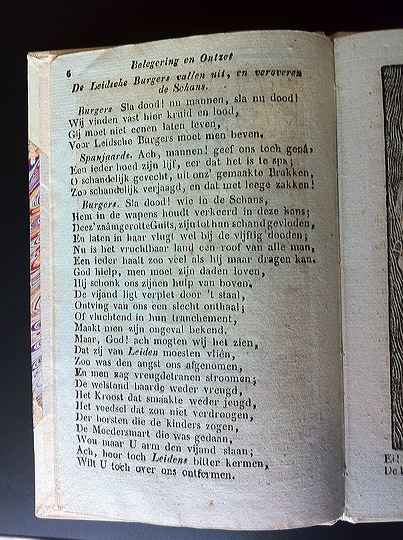 6 Belegering en Ontzet
De Leidsche Burgers vallen uit, en veroveren
de Schans.
Burgers Sla dood! nu mannen, sla nu dood!
Wij vinden vast hier kruid en lood,
Gij moet niet eenen laten leven,
Voor Leidsche Burgers moet men beven.
Spanjaards. Ach, mannen! geef ons toch genâ,
Een ieder hoed zijn lijf, eer dat het is te spa;
O schandelijk gevecht, uit onz' gemaakte Brakken,
Zoo schandelijk verjaagd, en dat met leege zakken!
Burgers. Sla dood! wie in de Schans,
Hem in de wapens houdt verkeerd in deze kans;
Deez' zaâmgerotte Guits, zijn tot hun schand gevloden,
En laten in haar vlugt wel bij de vijftig dooden;
Nu is het vruchtbaar land een roof van alle man,
Een ieder haalt zoo veel als hij maar dragen kan.
God hielp, men moet zijn daden loven,
Hij schonk ons zijnen hulp van boven,
De vijand ligt verplet door 't staal,
Ontving van ons een slecht onthaal;
Of vluchtend in hun tranchement,
Maakt men zijn ongeval bekend.
Maar, God! ach mogten wij het zien,
Dat zij van Leiden moesten vliên,
Zoo was den angst ons afgenomen,
En men zag vreugdetranen stroomen;
De welstand baarde weder vreugd,
Het Kroost dat smaakte weder jeugd,
Het voedsel dat zou niet verdroogen,
Der borsten die de kinders zogen,
De Moedersmart die was gedaan,
Wou maar U arm den vijand slaan;
Ach, hoor toch Leidens bitter kermen,
Wilt U toch over ons ontfermen.